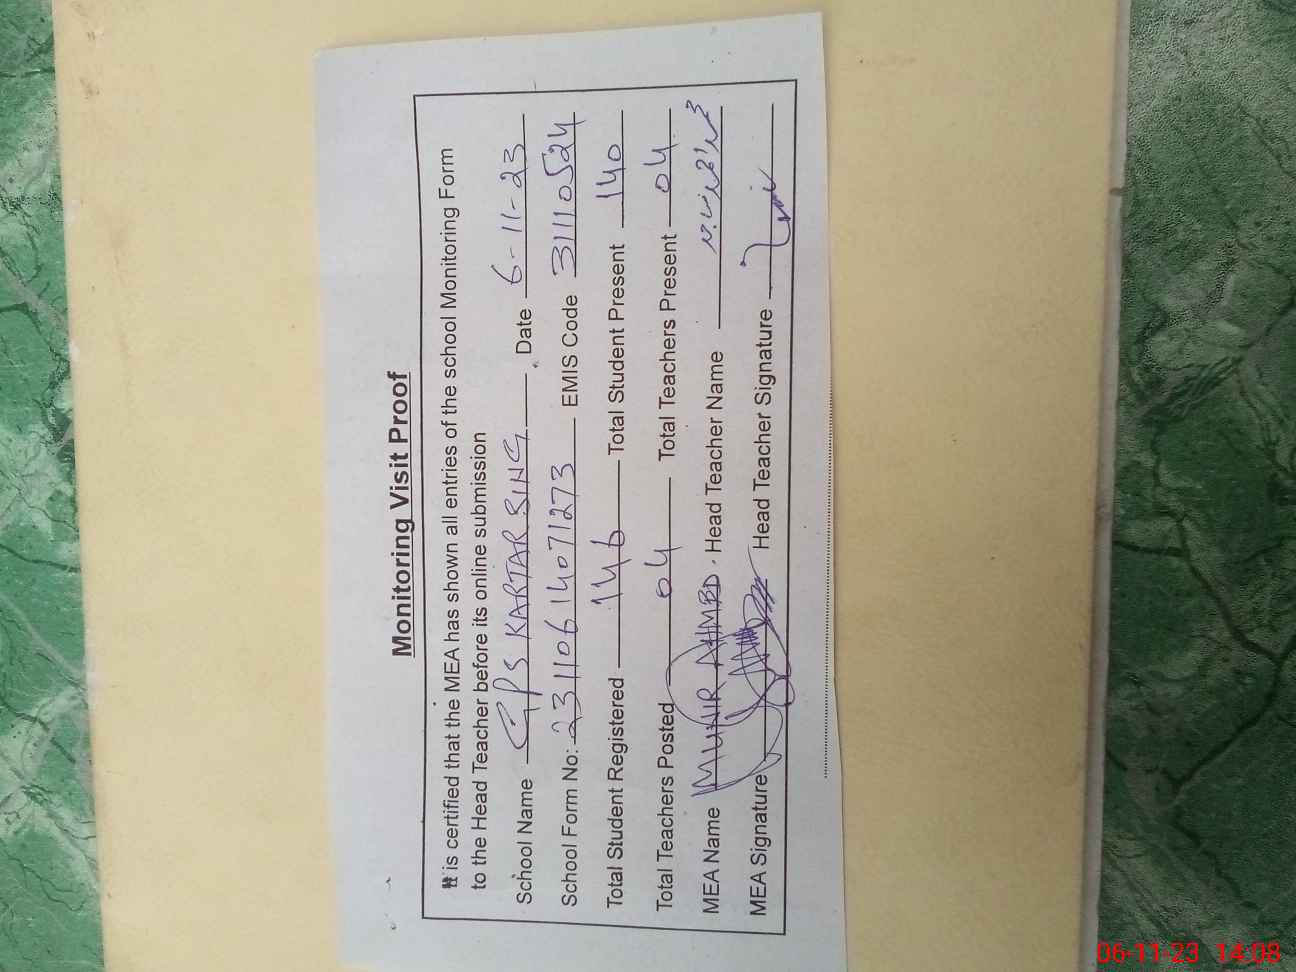 Monitoring Visit Proof
It is certified that the MEA has shown all entries of the school Monitoring Form
to the Head Teacher before its online submission
School Name GPS KARTAR SING . Date 6-11-23
School Form No: 23110614071273 EMIS Code 31110524
Total Student Registered 146 Total Student Present 140
Total Teachers Posted 04 Total Teachers Present 04
MEA Name MUNIR AHMED . Head Teacher Name
MEA Signature Head Teacher Signature
06-11-23 14:08